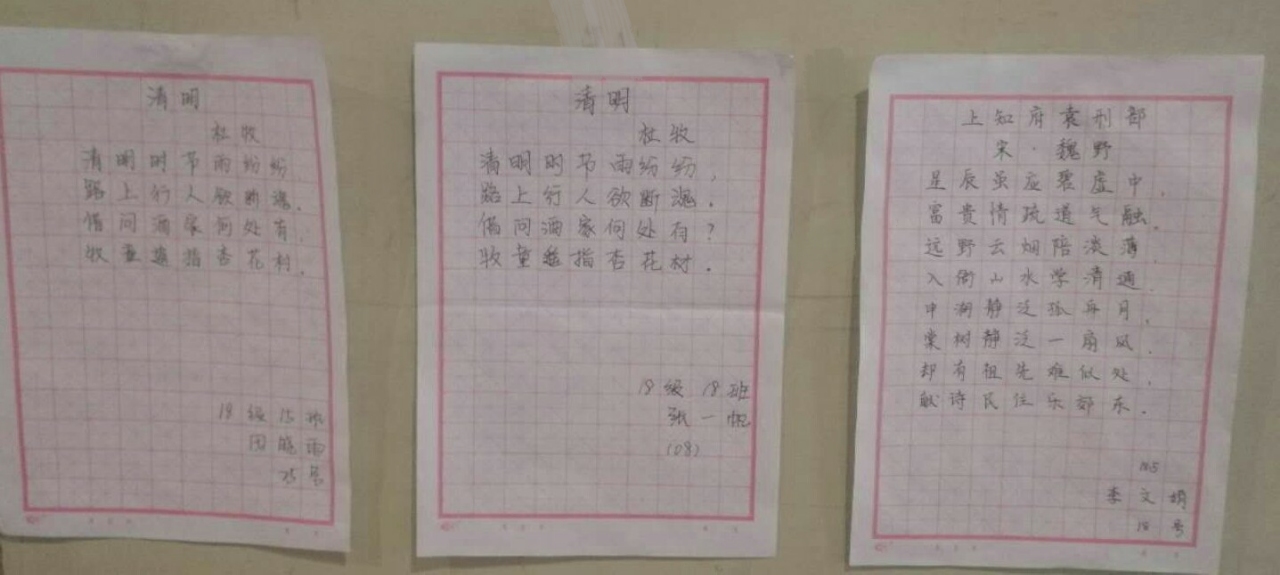 清明
杜牧
清明时节雨纷纷，
路上行人欲断魂。
借问酒家何处有
牧童遥指杏花村。
18级15班
田晓雨
25号
清明
杜牧
清明时节雨纷纷，
路上行人欲断魂．
借问酒家何处有？
牧童遥指杏花村．
18级18班
张一帆
(08)
上知府袁刑部
宋·魏野
星辰虽应碧虚中，
富贵情疏道气融．
远野云烟陪淡薄，
入衙山水学清通
中湖静泛孤舟月，
棠树静泛一扇风．
却有祖先难似处，
献诗民住乐郊东．
李文娟
18号